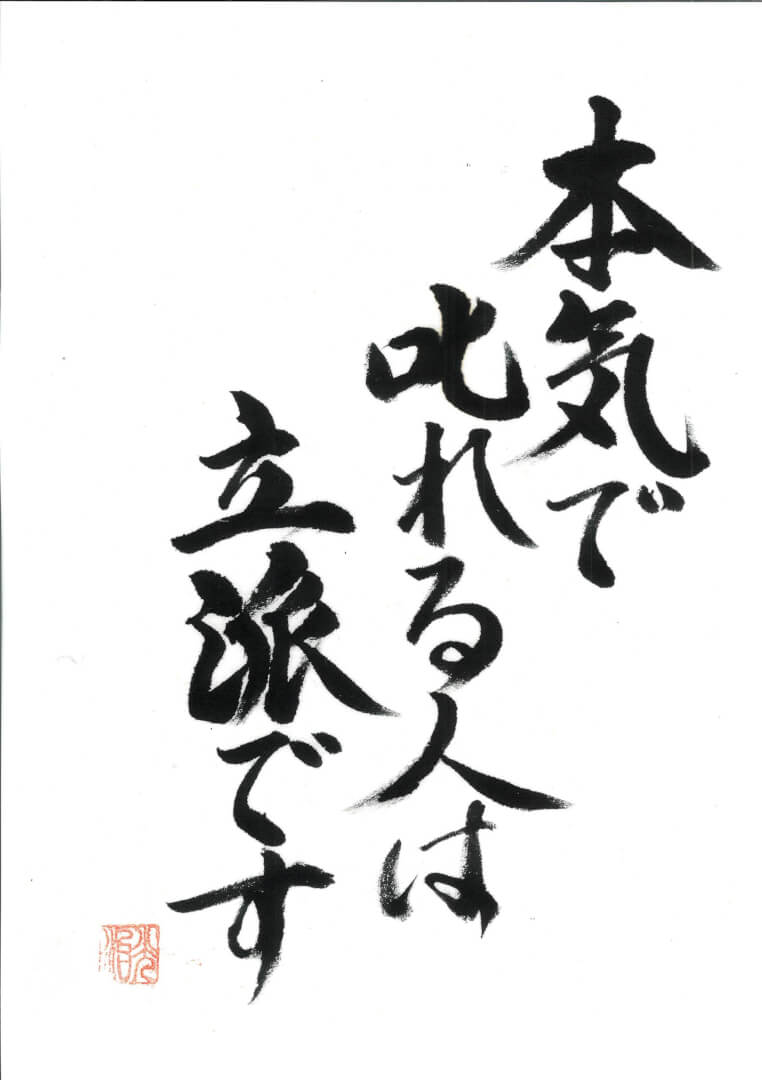 本気で
叱れる人は
立派です